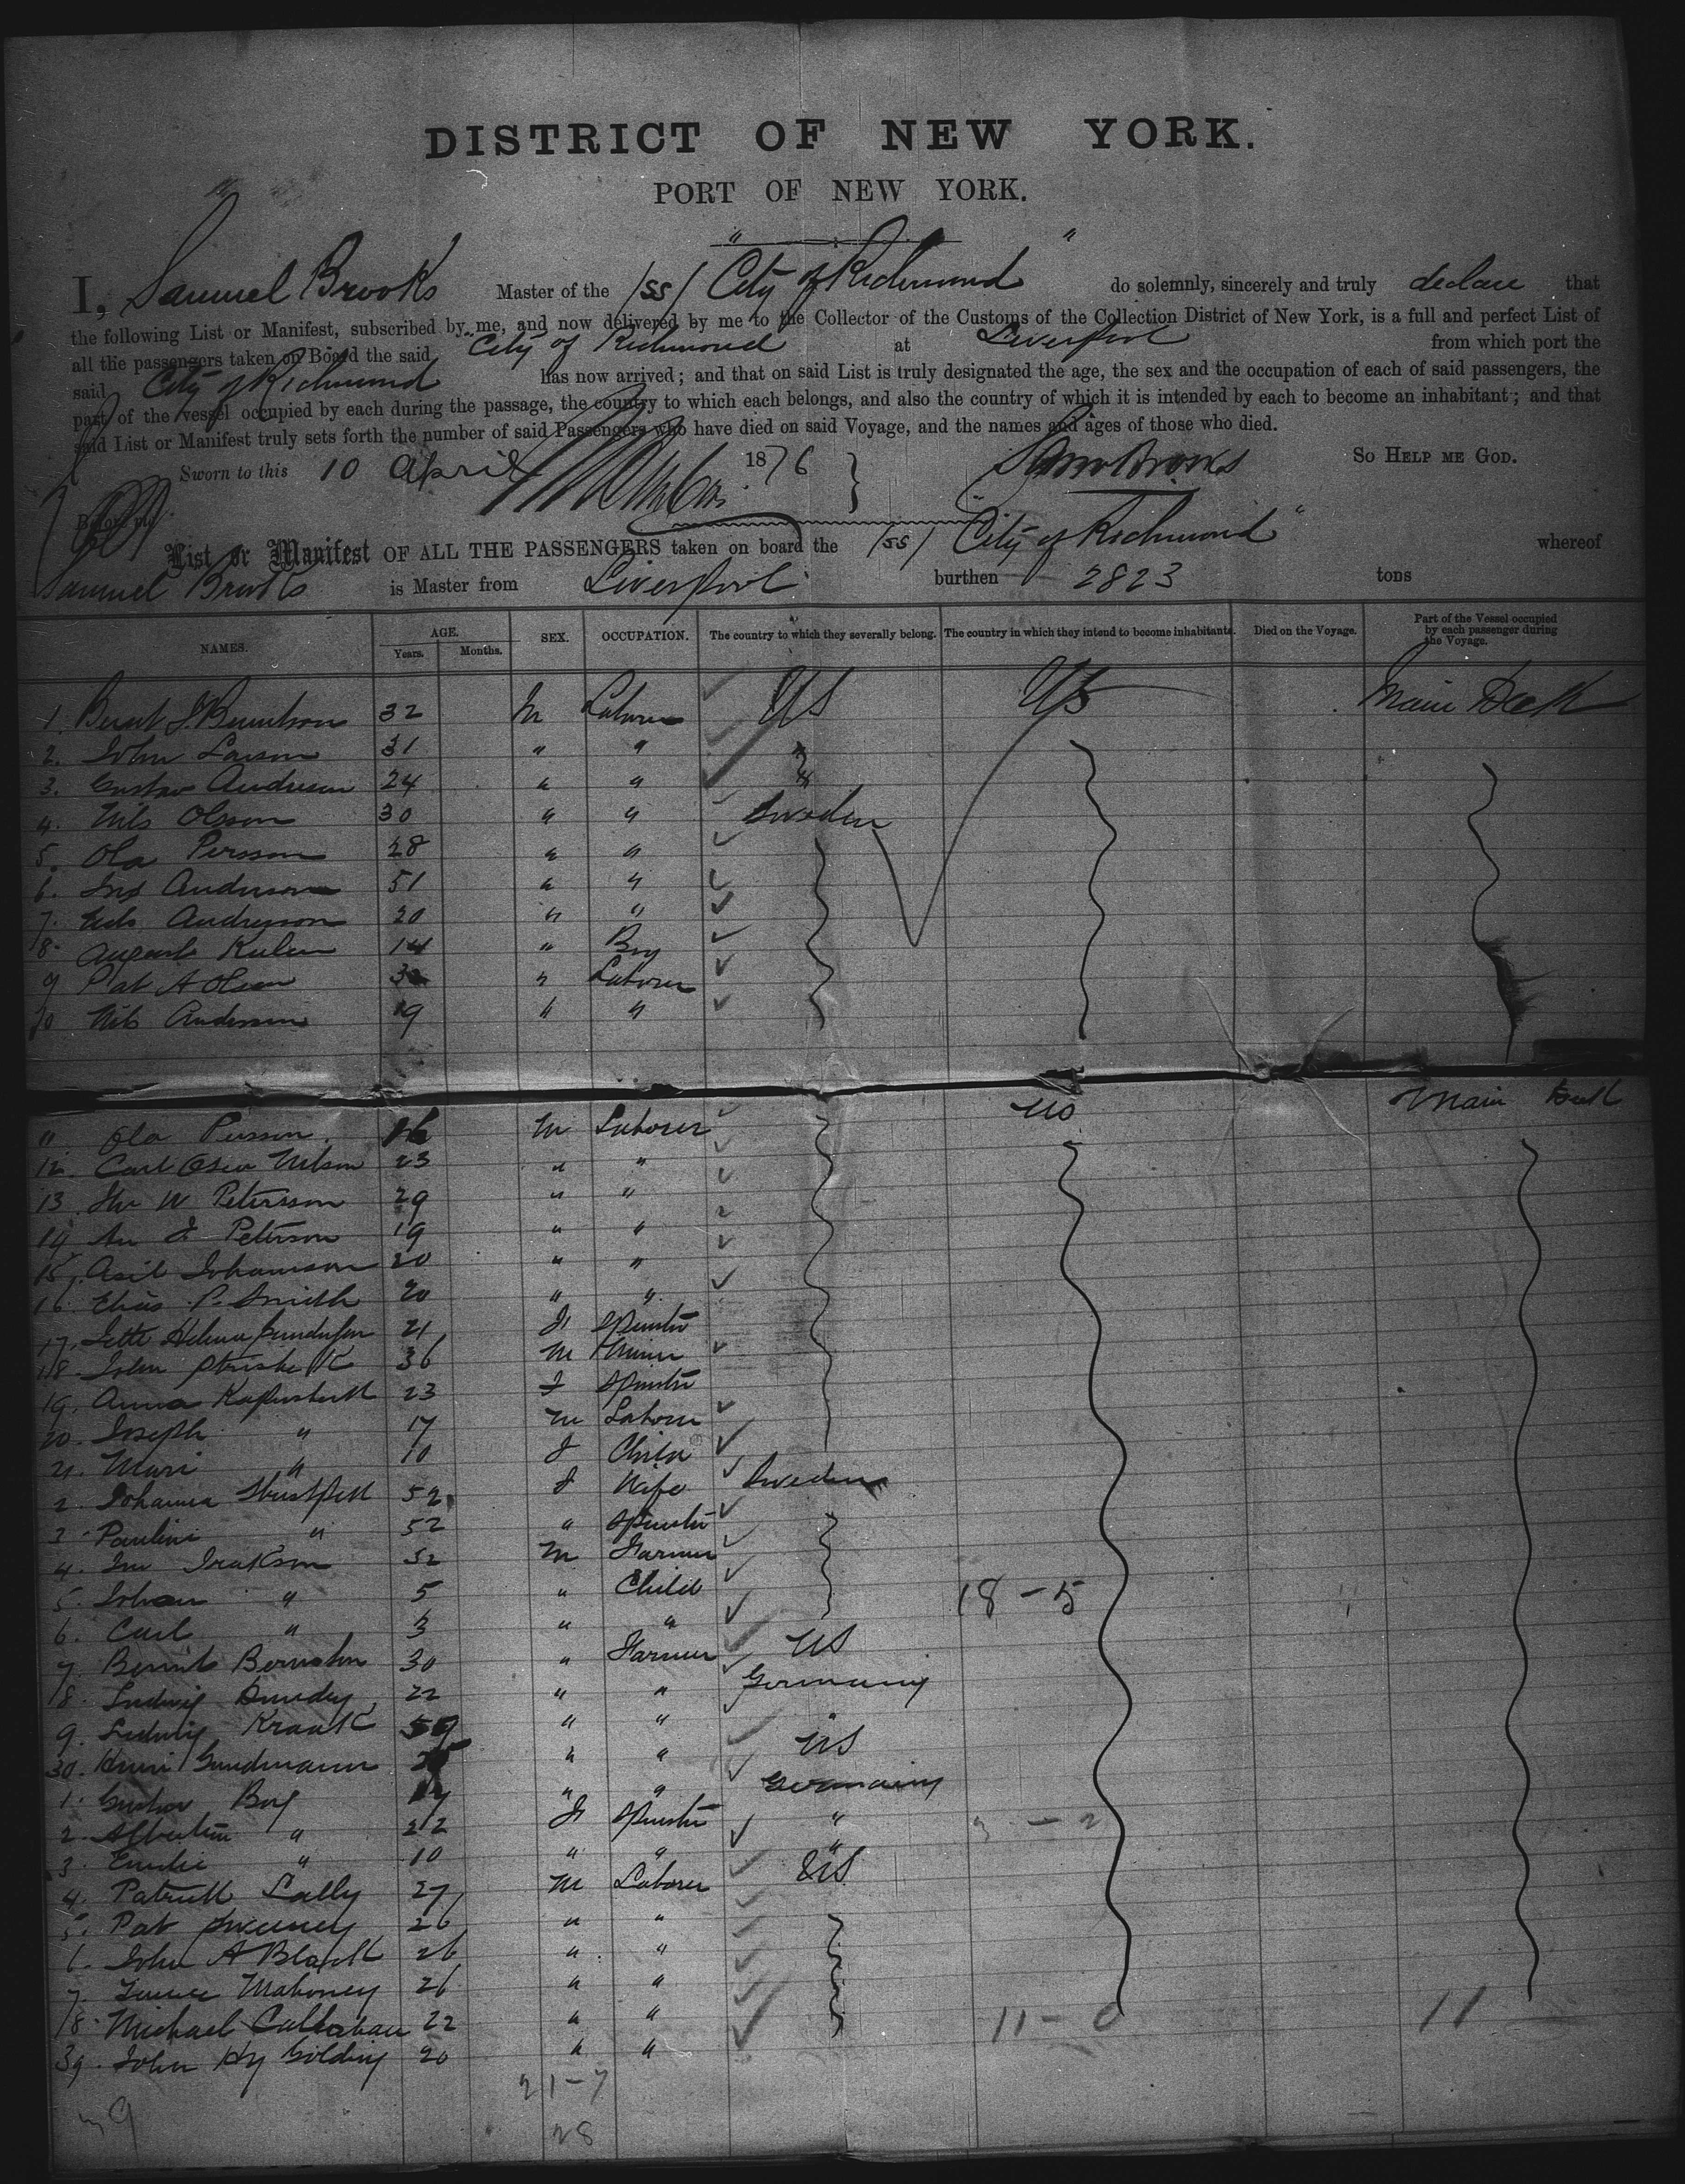 DISTRICT OF NEW YORK.
PORT OF NEW YORK.
I, Samuel Brooks Master of the /ss/ "City of Richmond" do solemnly, sincerely and truly declare that
the following List or Manifest, subscribed by me, and now delivered by me to the Collector of the Customs of the Collection District of New York, is a full and perfect List of
all the passengers taken on Board the said "City of Richmond at Liverpool from which port the
said City of Richmond has now arrived; and that on said List is truly designated the age, the sex and the occupation of each of said passengers, the
part of the vessel occupied by each during the passage, the country to which each belongs, and also the country of which it is intended by each to become an inhabitant; and that
said List or Manifest truly sets forth the number of said Passengers who have died on said Voyage, and the names and ages of those who died.
Sworn to this 10 April 1876 } Saml Brooks So HELP ME GOD.
Before me
List or Manifest OF ALL THE PASSENGERS taken on board the /ss/ "City of Richmond" whereof
Samuel Brooks is Master from Liverpool burthen 2823 tons
NAMES. AGE. Years. Months. SEX. OCCUPATION. The country to which they severally belong. The country in which they intend to become inhabitants. Died on the Voyage. Part of the Vessel occupied by each passenger during the Voyage.
1. 32 M Laborer US US Main Deck
2. John Larson 31 " "
3. Gustav Andersen 24 " " "
4. Nils Olsson 30 " " Sweden
5. Ola Persson 28 " "
6. Anderson 51 " "
7. Nils Andersson 20 " "
8. August 14 " Boy
9 Pat A Olsen " Laborer
10 Nils Anderson 19 " "
" Ola Persson. 16 M Laborer US Main Deck
12. Carl Nilson 23 " "
13. W Petersson 29 " "
14 Peterson 19 " "
15, Johannson 20 " "
16. Elias P. Smith 20 " "
17, Helena 21 F Spinster
18. John 36 M Miner
19. Anna 23 F Spinster
20. Joseph " 17 M Laborer
21. Mari " 10 F Child
2. Johanna 52 F Wife Sweden
3. Paulini " 52 " Spinster
4. Isakson 32 M Farmer
5. Johan " 5 " Child 18-5
6. Carl " 3 " "
7. 30 " Farmer US
8. Ludwig 22 " " Germany
9. Ludwig " " US
30. " " Germany
1. Gustav Berg " "
2. Albertine " 22 F Spinster "
3. Emilie " 10 " " "
4. Patrick Lally 27 M Laborer US
5. Pat Sweeney 26 " "
6. John A Black 26 " "
7. Mahoney 26 " "
8. Michael Callahan 22 " " 11-0 11
39. John Hy Golding 20 " "
21-7
28